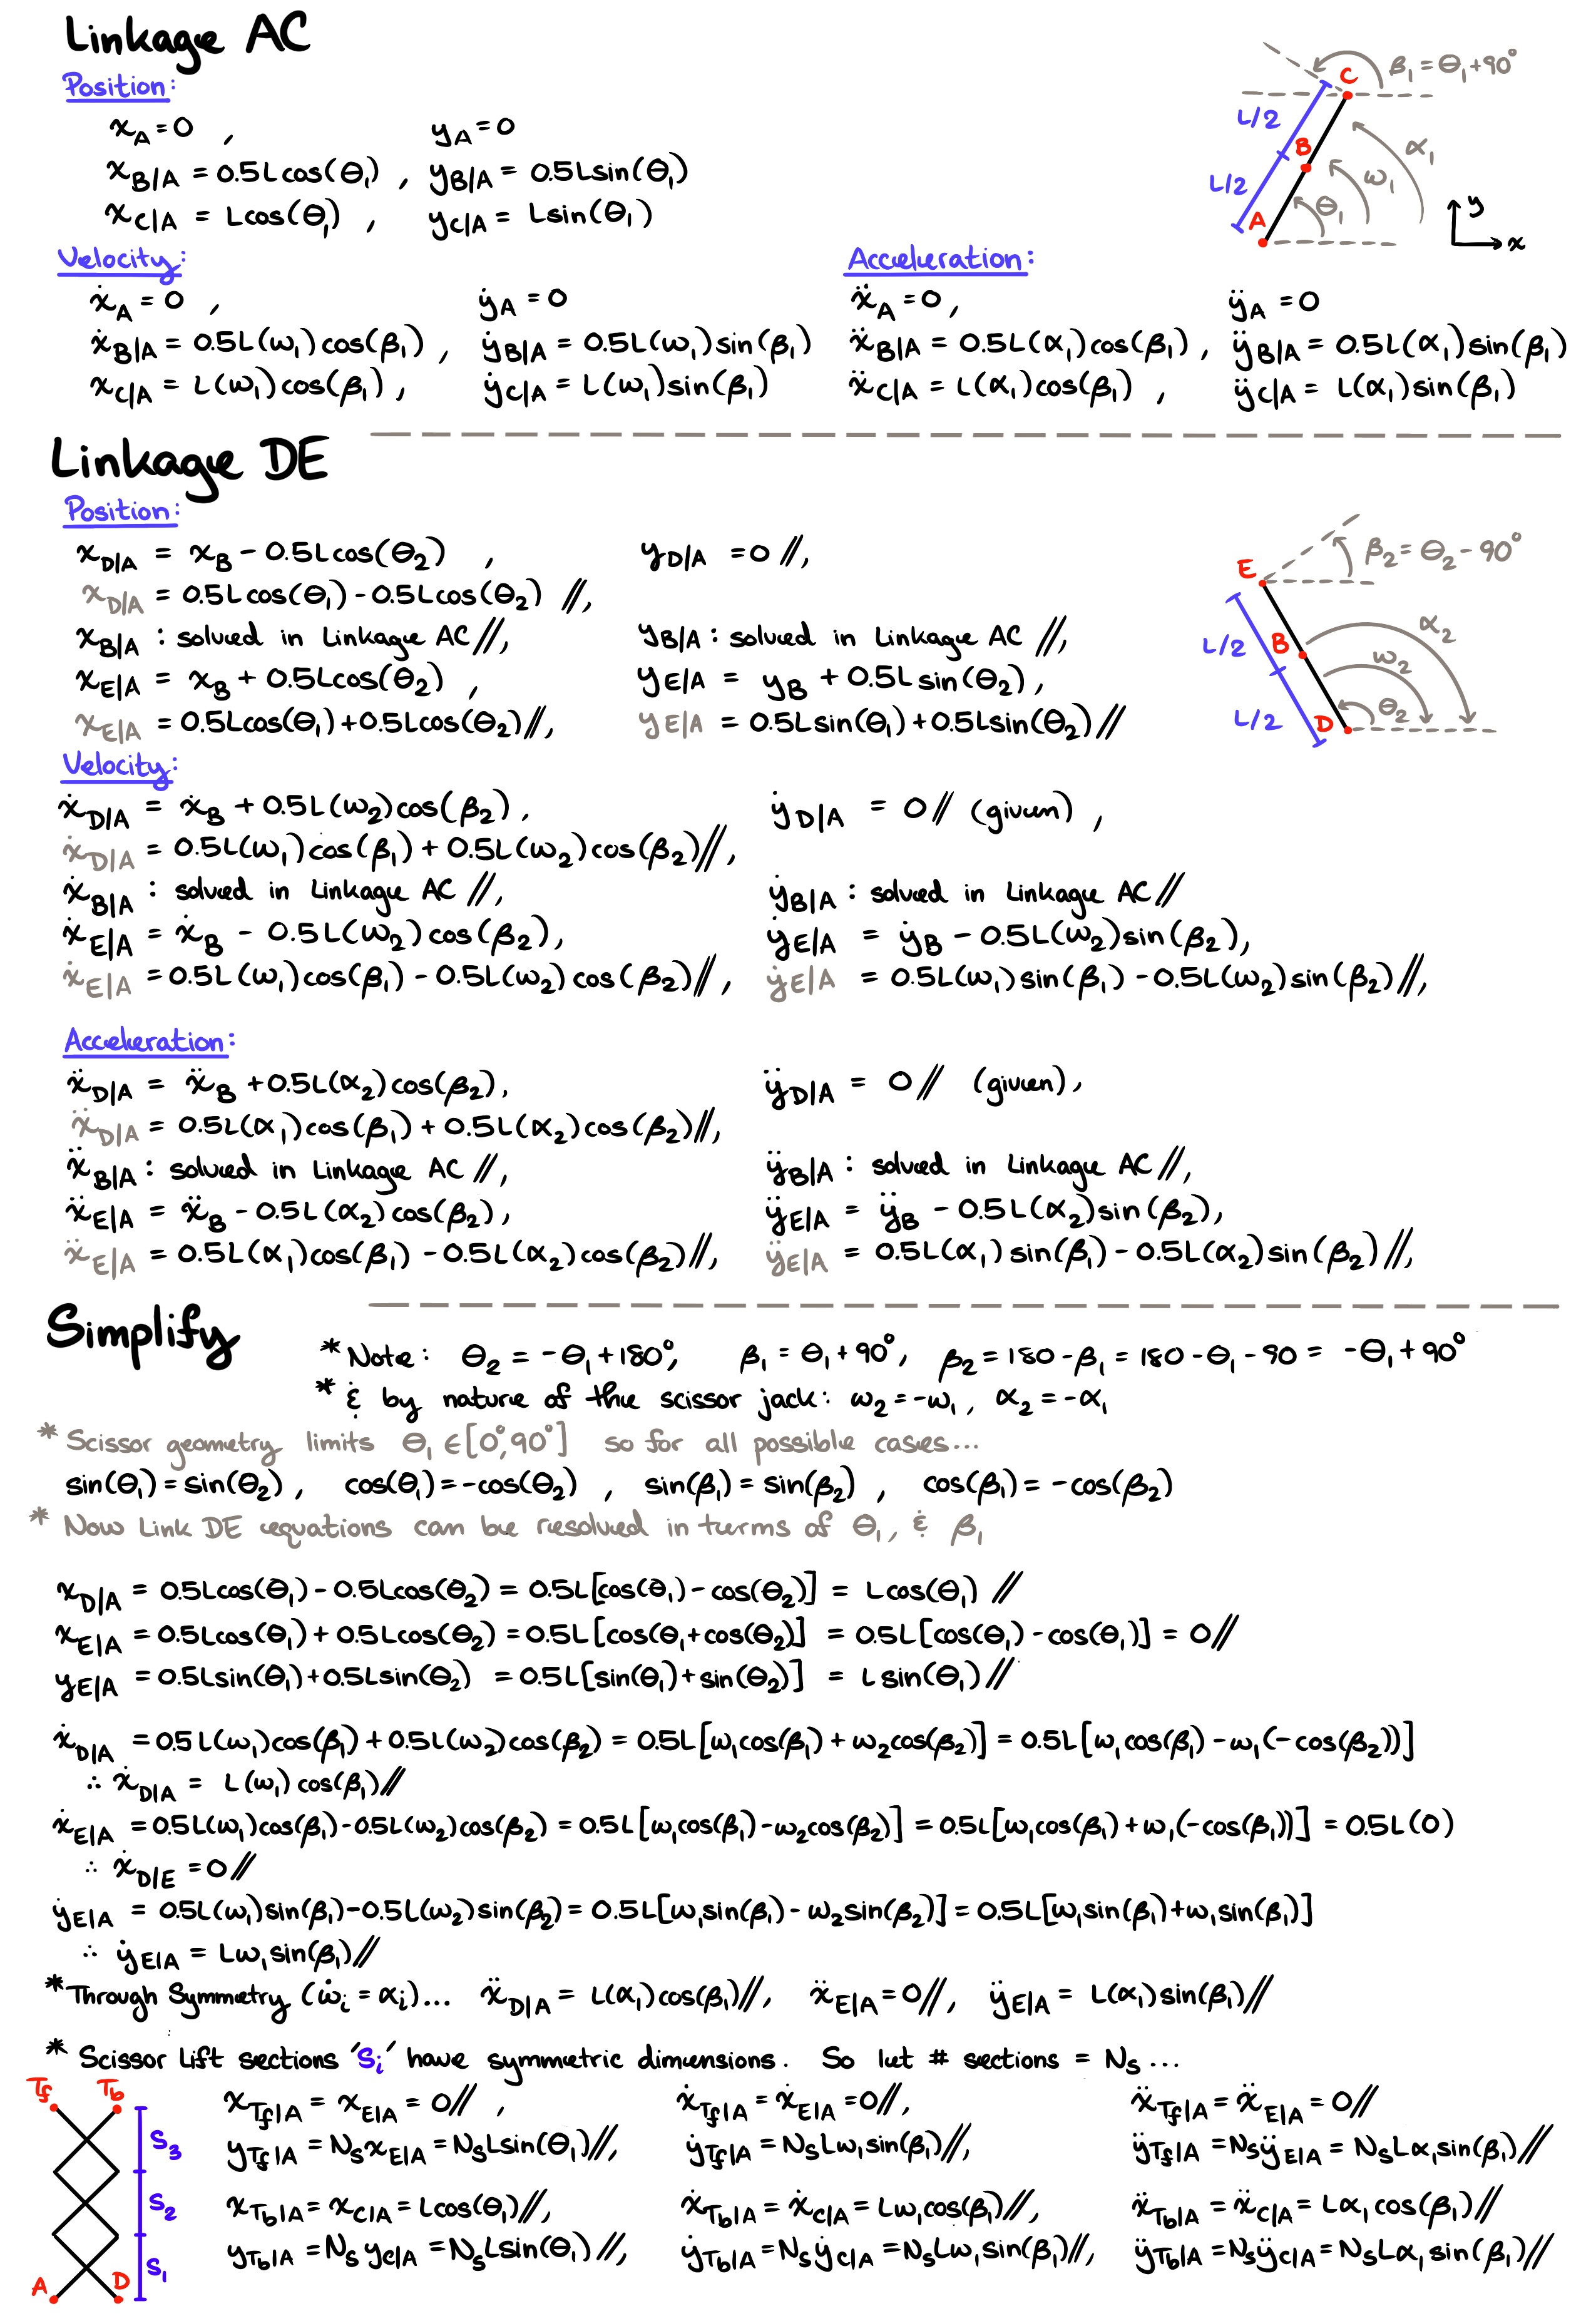 Linkage AC
Position:
x_A = 0 , y_A = 0
x_B|A = 0.5Lcos(θ₁) , y_B|A = 0.5Lsin(θ₁)
x_C|A = Lcos(θ₁) , y_C|A = Lsin(θ₁)
C
β₁ = θ₁+90°
L/2
B
α₁
L/2
ω₁
A
θ₁
y
x
Velocity:
ẋ_A = 0 , ẏ_A = 0
ẋ_B|A = 0.5L(ω₁)cos(β₁) , ẏ_B|A = 0.5L(ω₁)sin(β₁)
x_C|A = L(ω₁)cos(β₁) , ẏ_C|A = L(ω₁)sin(β₁)
Acceleration:
ẍ_A = 0 , ÿ_A = 0
ẍ_B|A = 0.5L(α₁)cos(β₁) , ÿ_B|A = 0.5L(α₁)sin(β₁)
ẍ_C|A = L(α₁)cos(β₁) , ÿ_C|A = L(α₁)sin(β₁)
Linkage DE
Position:
x_D|A = x_B - 0.5Lcos(θ₂) , y_D|A = 0 //,
x_D|A = 0.5Lcos(θ₁) - 0.5Lcos(θ₂) //,
x_B|A : solved in Linkage AC //, y_B|A : solved in Linkage AC //,
x_E|A = x_B + 0.5Lcos(θ₂) , y_E|A = y_B + 0.5Lsin(θ₂),
x_E|A = 0.5Lcos(θ₁)+0.5Lcos(θ₂)//, y_E|A = 0.5Lsin(θ₁)+0.5Lsin(θ₂)//
E
β₂ = θ₂ - 90°
L/2
B
α₂
ω₂
L/2
D
θ₂
Velocity:
ẋ_D|A = ẋ_B + 0.5L(ω₂)cos(β₂), ẏ_D|A = 0 // (given) ,
ẋ_D|A = 0.5L(ω₁)cos(β₁) + 0.5L(ω₂)cos(β₂)//,
ẋ_B|A : solved in Linkage AC //, ẏ_B|A : solved in Linkage AC //
ẋ_E|A = ẋ_B - 0.5L(ω₂)cos(β₂), ẏ_E|A = ẏ_B - 0.5L(ω₂)sin(β₂),
ẋ_E|A = 0.5L(ω₁)cos(β₁) - 0.5L(ω₂)cos(β₂)//, ẏ_E|A = 0.5L(ω₁)sin(β₁) - 0.5L(ω₂)sin(β₂)//,
Acceleration:
ẍ_D|A = ẍ_B + 0.5L(α₂)cos(β₂), ÿ_D|A = 0 // (given),
ẍ_D|A = 0.5L(α₁)cos(β₁) + 0.5L(α₂)cos(β₂)//,
ẍ_B|A : solved in Linkage AC //, ÿ_B|A : solved in Linkage AC //,
ẍ_E|A = ẍ_B - 0.5L(α₂)cos(β₂), ÿ_E|A = ÿ_B - 0.5L(α₂)sin(β₂),
ẍ_E|A = 0.5L(α₁)cos(β₁) - 0.5L(α₂)cos(β₂)//, ÿ_E|A = 0.5L(α₁)sin(β₁) - 0.5L(α₂)sin(β₂)//,
Simplify
* Note: θ₂ = -θ₁+180°, β₁ = θ₁+90°, β₂ = 180-β₁ = 180-θ₁-90 = -θ₁+90°
* & by nature of the scissor jack: ω₂ = -ω₁, α₂ = -α₁
* Scissor geometry limits θ₁ ∈ [0°,90°] so for all possible cases...
sin(θ₁) = sin(θ₂) , cos(θ₁) = -cos(θ₂) , sin(β₁) = sin(β₂) , cos(β₁) = -cos(β₂)
* Now Link DE equations can be resolved in terms of θ₁, & β₁
x_D|A = 0.5Lcos(θ₁) - 0.5Lcos(θ₂) = 0.5L[cos(θ₁) - cos(θ₂)] = Lcos(θ₁) //
x_E|A = 0.5Lcos(θ₁) + 0.5Lcos(θ₂) = 0.5L[cos(θ₁+cos(θ₂)] = 0.5L[cos(θ₁) - cos(θ₁)] = 0//
y_E|A = 0.5Lsin(θ₁)+0.5Lsin(θ₂) = 0.5L[sin(θ₁)+sin(θ₂)] = Lsin(θ₁)//
ẋ_D|A = 0.5L(ω₁)cos(β₁)+0.5L(ω₂)cos(β₂) = 0.5L[ω₁cos(β₁) + ω₂cos(β₂)] = 0.5L[ω₁cos(β₁) - ω₁(-cos(β₂))]
∴ ẋ_D|A = L(ω₁)cos(β₁)//
ẋ_E|A = 0.5L(ω₁)cos(β₁)-0.5L(ω₂)cos(β₂) = 0.5L[ω₁cos(β₁)-ω₂cos(β₂)] = 0.5L[ω₁cos(β₁)+ω₁(-cos(β₁))] = 0.5L(0)
∴ ẋ_D|E = 0//
ẏ_E|A = 0.5L(ω₁)sin(β₁)-0.5L(ω₂)sin(β₂) = 0.5L[ω₁sin(β₁)-ω₂sin(β₂)] = 0.5L[ω₁sin(β₁)+ω₁sin(β₁)]
∴ ẏ_E|A = Lω₁sin(β₁)//
* Through Symmetry (ω̇ᵢ = αᵢ)... ẍ_D|A = L(α₁)cos(β₁)//, ẍ_E|A = 0//, ÿ_E|A = L(α₁)sin(β₁)//
* Scissor Lift sections 'Sᵢ' have symmetric dimensions. So let # sections = N_S ...
T_f
T_b
S₃
S₂
S₁
A
D
x_Tf|A = x_E|A = 0// , ẋ_Tf|A = ẋ_E|A = 0//, ẍ_Tf|A = ẍ_E|A = 0//
y_Tf|A = N_S x_E|A = N_S Lsin(θ₁)//, ẏ_Tf|A = N_S Lω₁sin(β₁)//, ÿ_Tf|A = N_S ÿ_E|A = N_S Lα₁sin(β₁)//
x_Tb|A = x_C|A = Lcos(θ₁)//, ẋ_Tb|A = ẋ_C|A = Lω₁cos(β₁)//, ẍ_Tb|A = ẍ_C|A = Lα₁cos(β₁)//
y_Tb|A = N_S y_C|A = N_S Lsin(θ₁)//, ẏ_Tb|A = N_S ẏ_C|A = N_S Lω₁sin(β₁)//, ÿ_Tb|A = N_S ÿ_C|A = N_S Lα₁sin(β₁)//